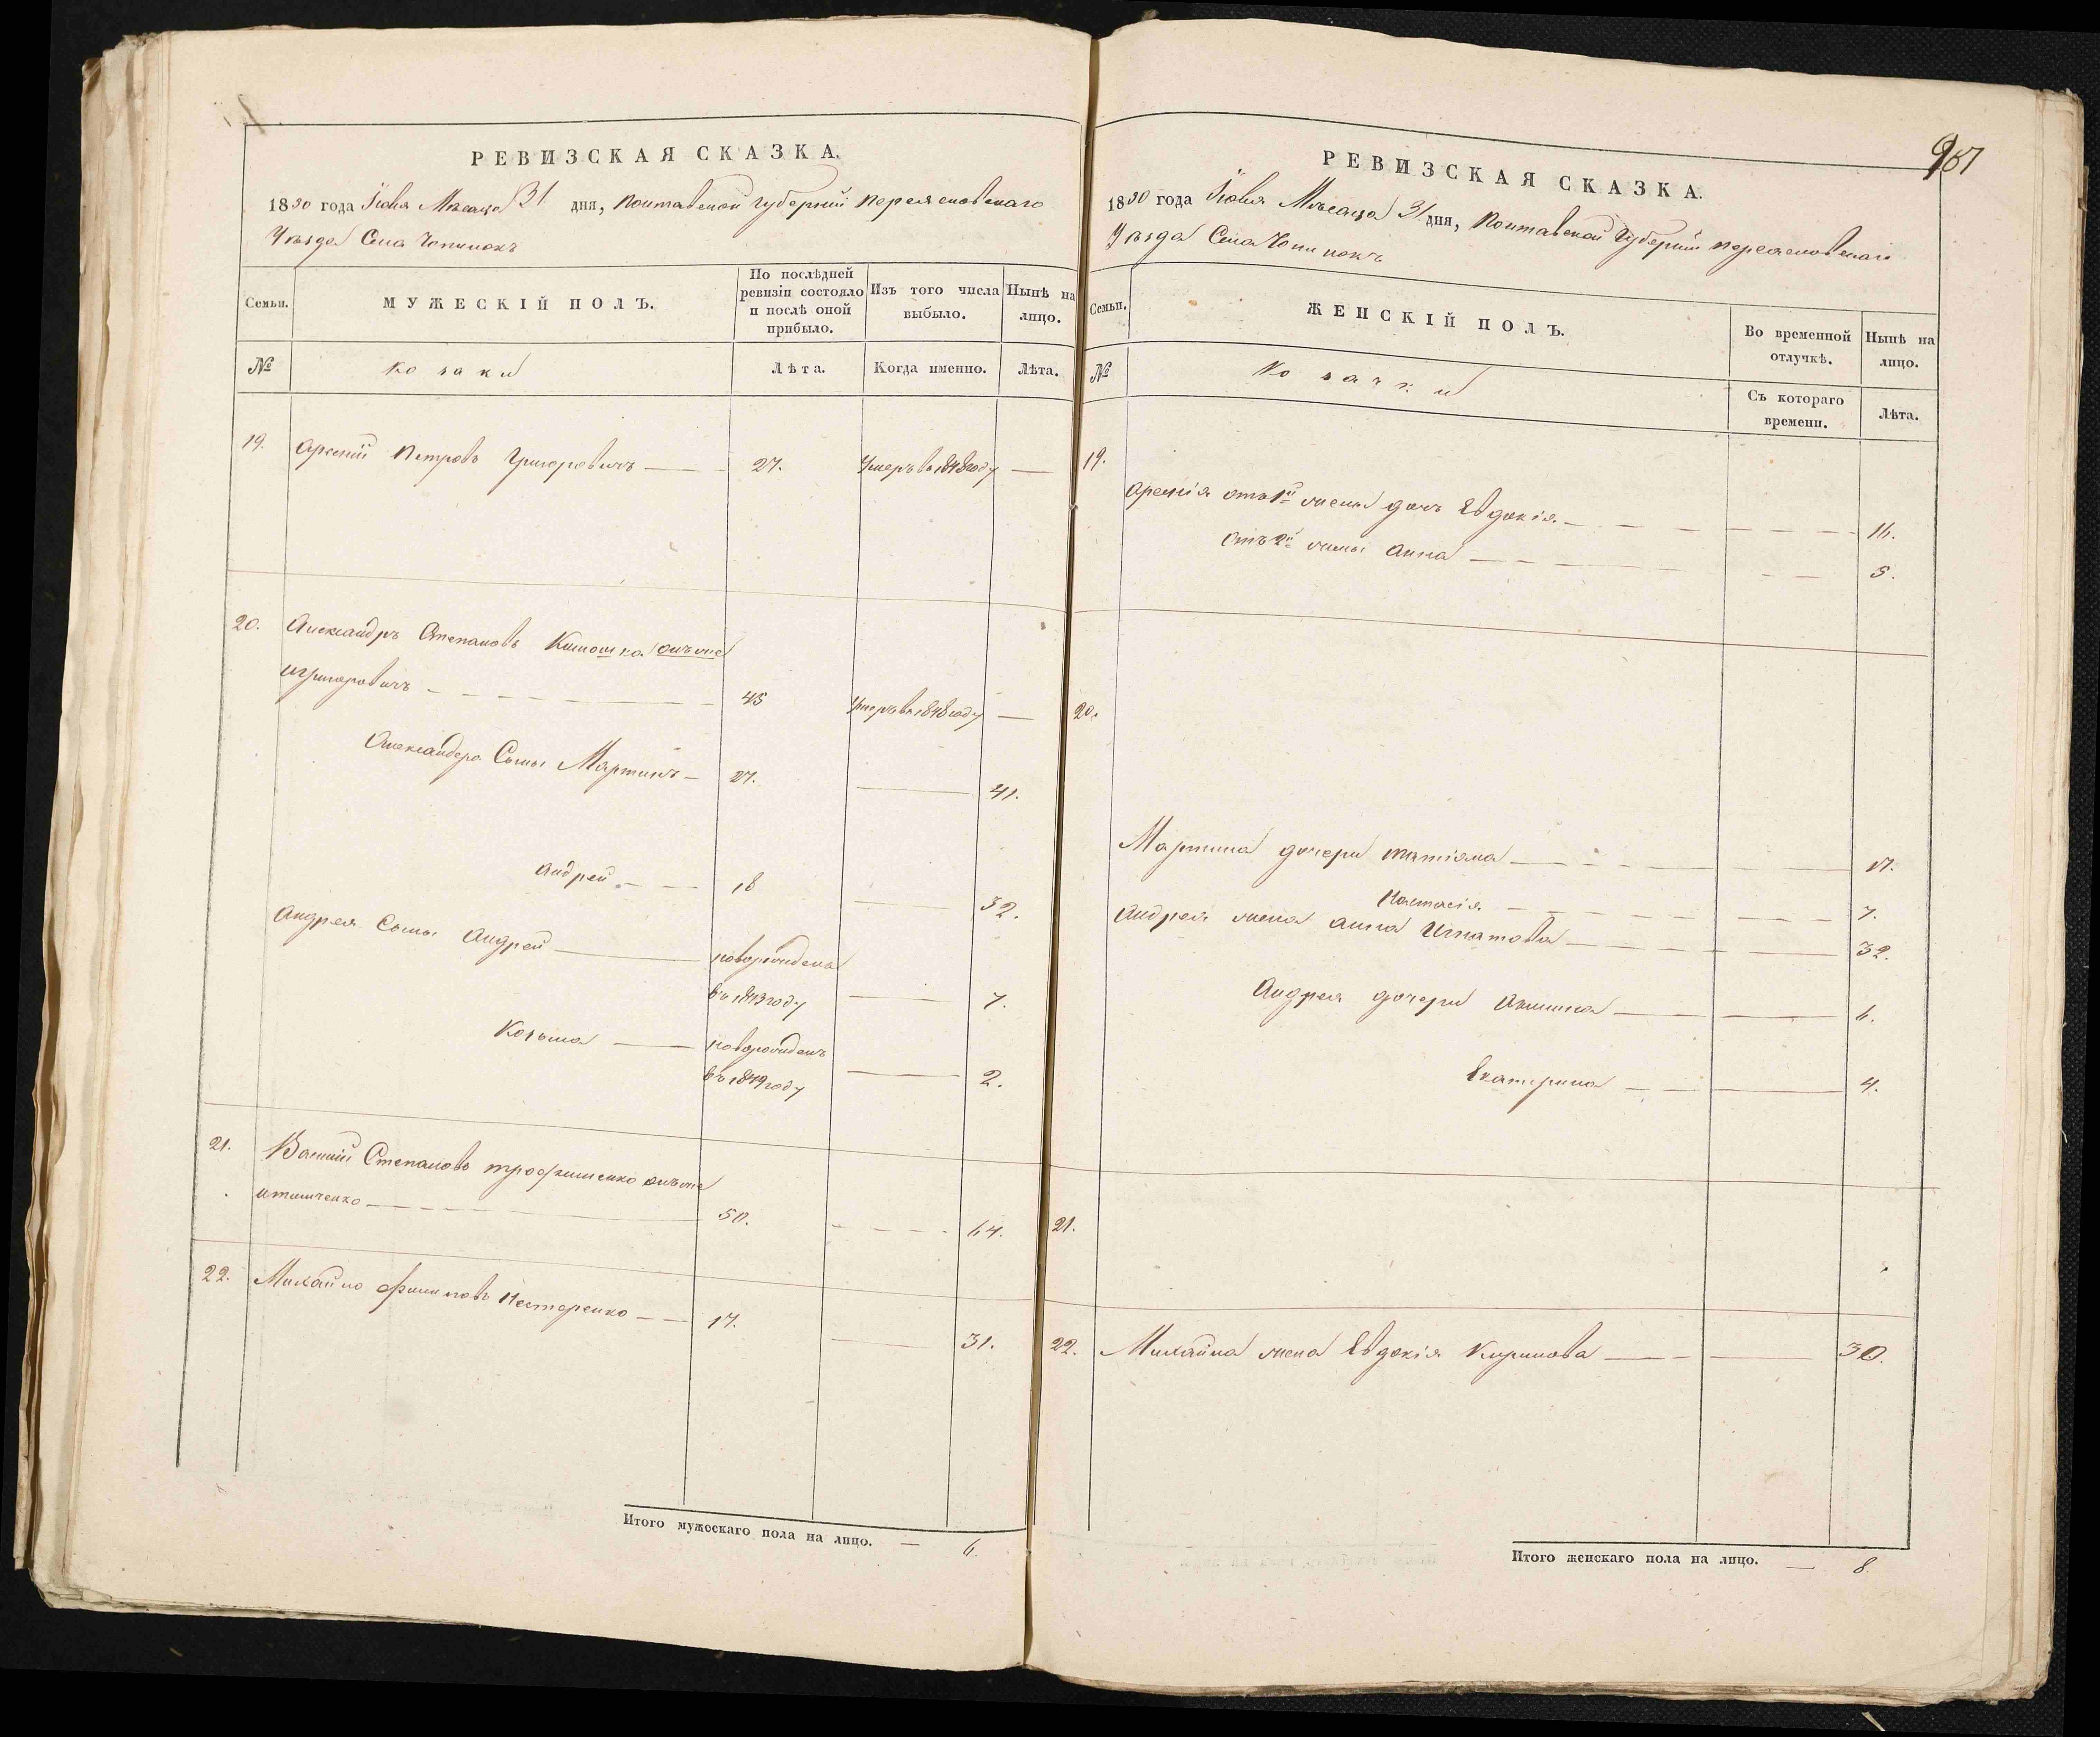 987
РЕВИЗСКАЯ СКАЗКА.
1850 года Іюля Мѣсяца 31 дня, Полтавской губерніи Переясловскаго
Уѣзда Села Чопилокъ
Семьи.
МУЖЕСКІЙ ПОЛЪ.
По послѣдней ревизіи состояло и послѣ оной прибыло.
Изъ того числа выбыло.
Нынѣ на лицо.
№
Козаки
Лѣта.
Когда именно.
Лѣта.
19. Арсеній Петровъ Григоровичъ — 27. Умеръ въ 1848 году —
20. Александръ Степановъ Кишошка онъ же
и Григоровичъ — 45 Умеръ въ 1848 году —
Александра Сыны Мартинъ — 27. — 41.
Андрей — 18 — 32.
Андрея Сыны Андрей — новорожденъ
въ 1843 году — 7.
Козьма — новорожденъ
въ 1849 году — 2.
21. Василій Степановъ Трофименко онъ же
и — 50. — 64.
22. Михайло Филиповъ Нестеренко — 17. — 31.
Итого мужескаго пола на лицо. — 6.
РЕВИЗСКАЯ СКАЗКА.
1850 года Іюля Мѣсяца 31 дня, Полтавской Губерніи Переясловскаго
Уѣзда Села Чопилокъ
Семьи.
ЖЕНСКІЙ ПОЛЪ.
Во временной отлучкѣ.
Нынѣ на лицо.
№
Козачки
Съ котораго времени.
Лѣта.
19.
Арсенія отъ 1й жены дочь Евдокія — 16.
Отъ 2й жены Анна — 5.
20.
Мартина дочери Татіяна — 17.
Настасія — 7.
Андрея жена Анна Игнатова — 32.
Андрея дочери Акилина — 6.
Екатерина — 4.
21.
22. Михайла жена Евдокія Кирилова — 30.
Итого женскаго пола на лицо. — 8.